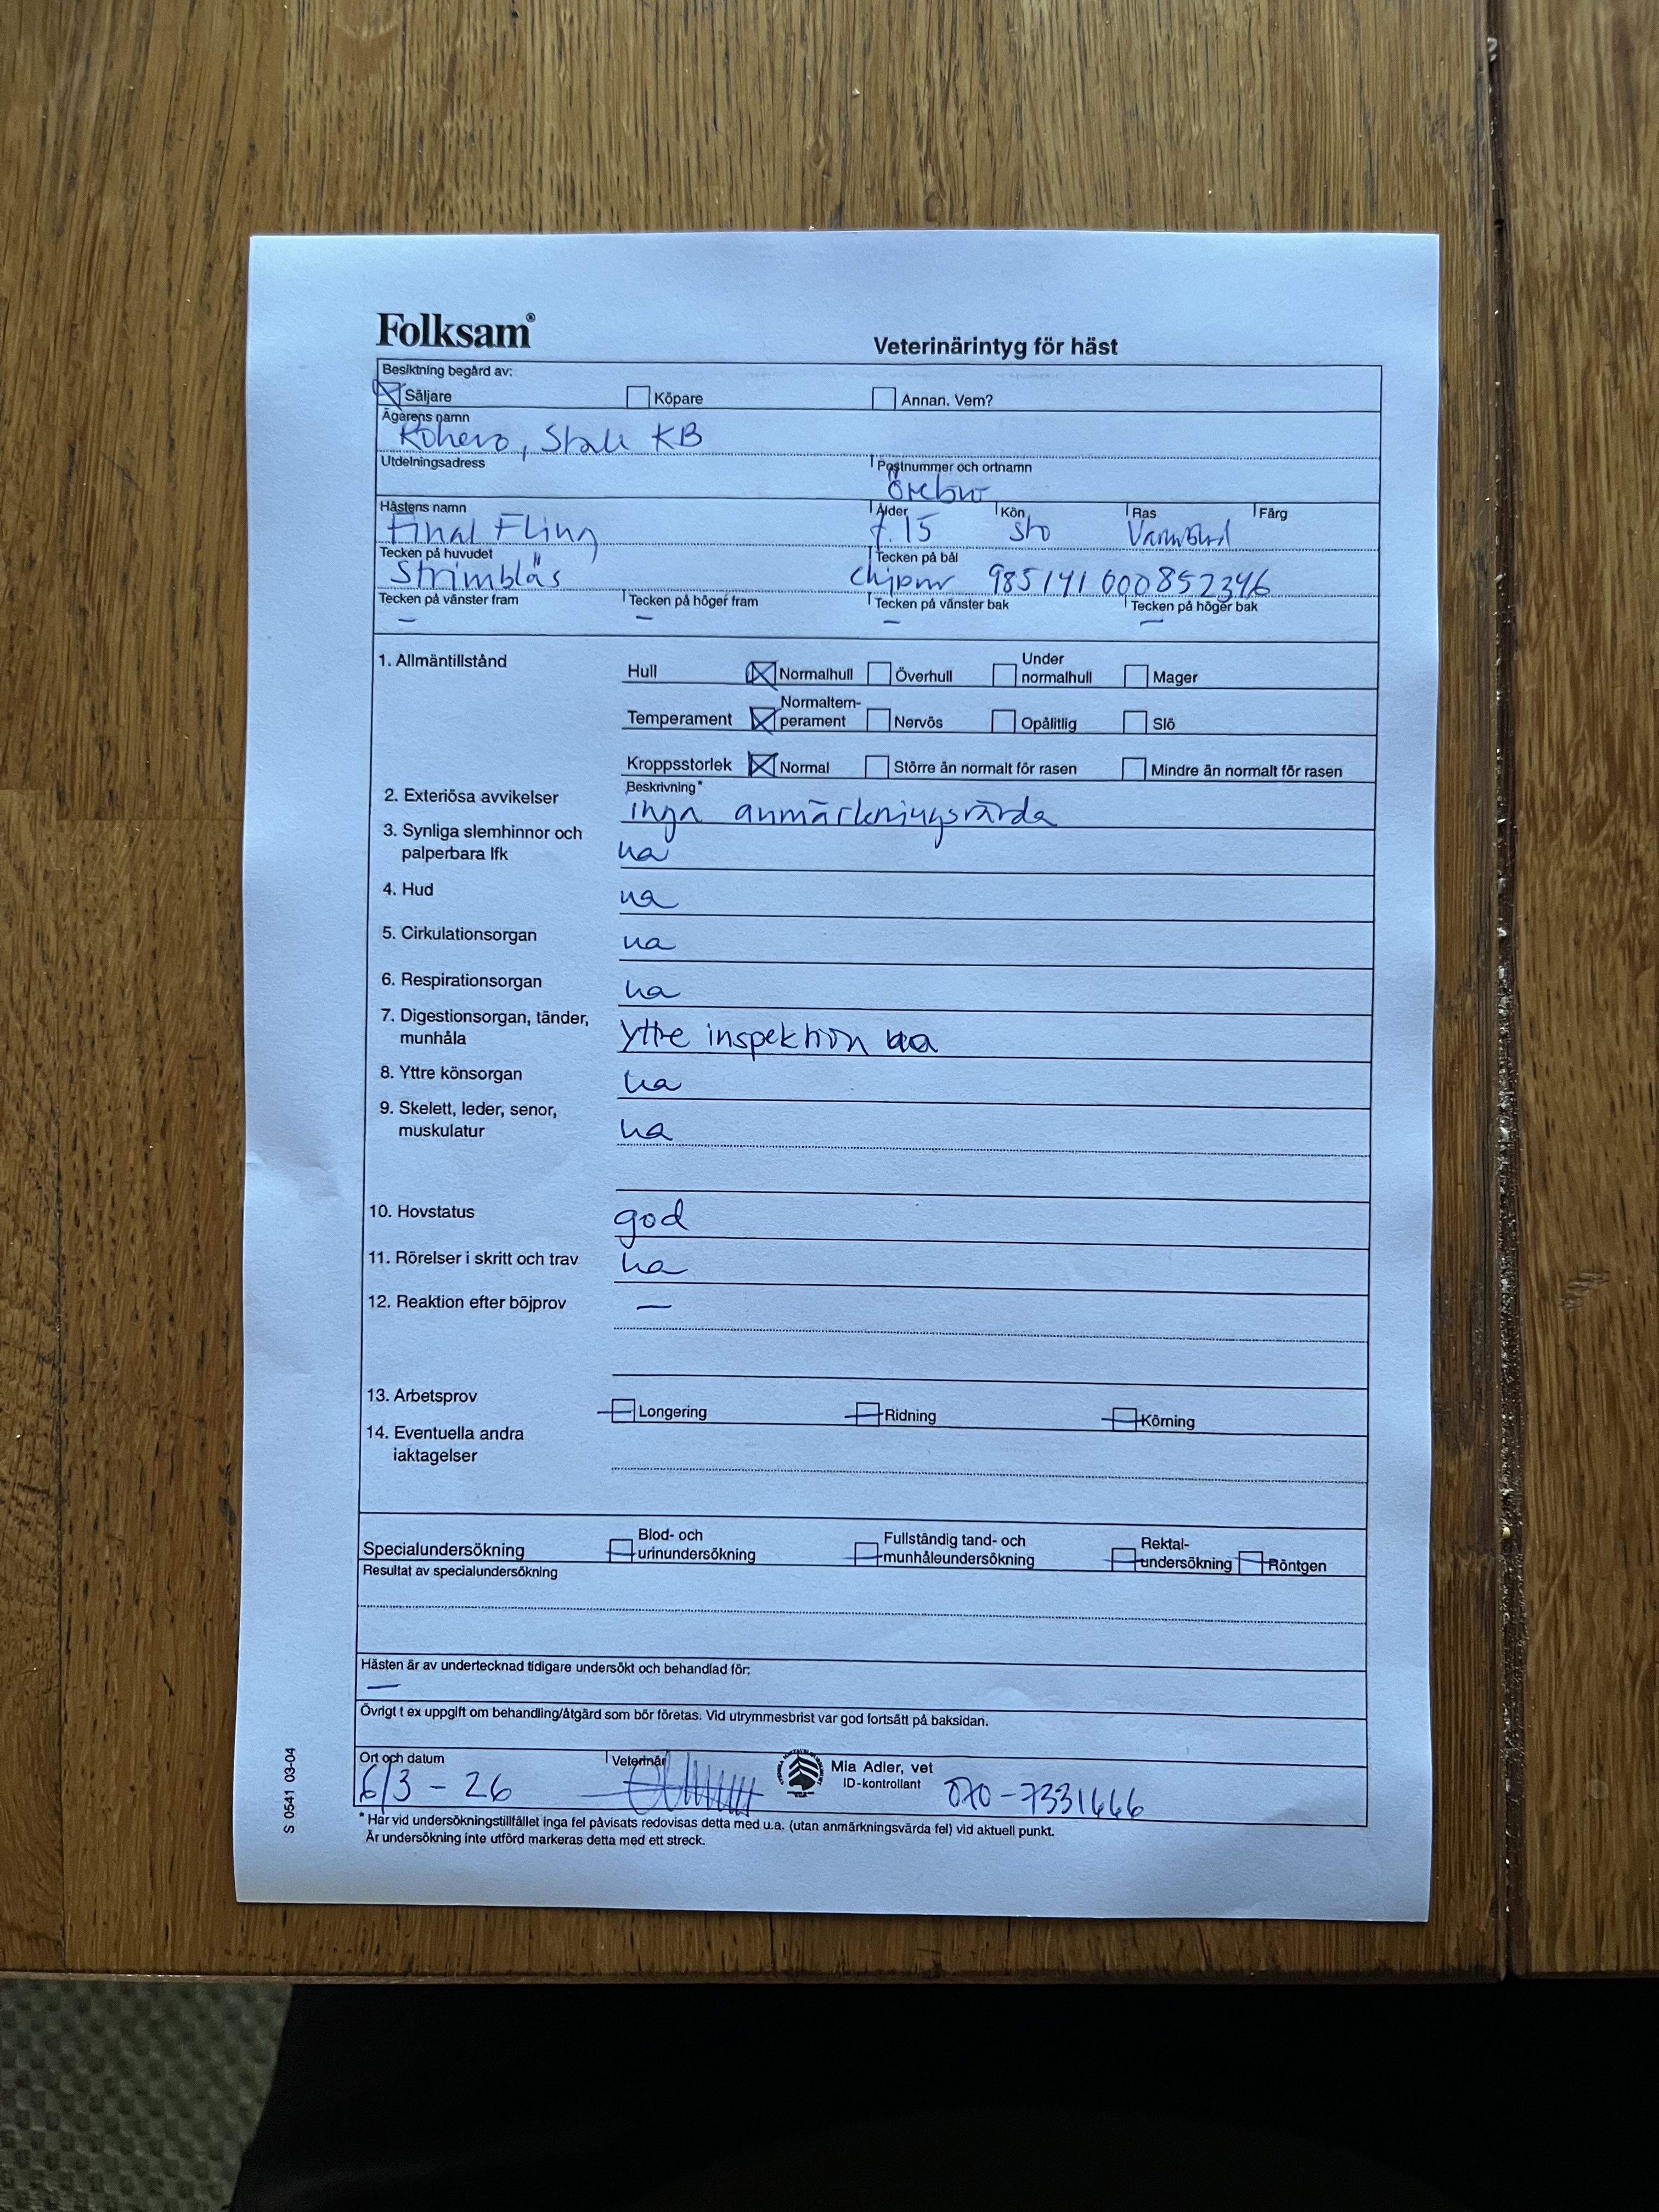 Folksam®
Veterinärintyg för häst
Besiktning begärd av:
Säljare Köpare Annan. Vem?
Ägarens namn
Rohero, Stall KB
Utdelningsadress Postnummer och ortnamn
Örebro
Hästens namn Ålder Kön Ras Färg
Final Fling f. 15 sto Varmblod
Tecken på huvudet Tecken på bål
Strimbläs chipnr 985141000852346
Tecken på vänster fram Tecken på höger fram Tecken på vänster bak Tecken på höger bak
– – – –
1. Allmäntillstånd Hull Normalhull Överhull Under normalhull Mager
Temperament Normaltem-perament Nervös Opålitlig Slö
Kroppsstorlek Normal Större än normalt för rasen Mindre än normalt för rasen
Beskrivning*
2. Exteriösa avvikelser inga anmärkningsvärda
3. Synliga slemhinnor och
palperbara lfk ua
4. Hud ua
5. Cirkulationsorgan ua
6. Respirationsorgan ua
7. Digestionsorgan, tänder,
munhåla Yttre inspektion ua
8. Yttre könsorgan ua
9. Skelett, leder, senor,
muskulatur ua
10. Hovstatus god
11. Rörelser i skritt och trav ua
12. Reaktion efter böjprov —
13. Arbetsprov Longering Ridning Körning
14. Eventuella andra
iaktagelser
Specialundersökning Blod- och urinundersökning Fullständig tand- och munhåleundersökning Rektal-undersökning Röntgen
Resultat av specialundersökning
Hästen är av undertecknad tidigare undersökt och behandlad för:
—
Övrigt t ex uppgift om behandling/åtgärd som bör företas. Vid utrymmesbrist var god fortsätt på baksidan.
Ort och datum Veterinär
6/3 - 26 Mia Adler, vet
ID-kontrollant 070-7331666
* Har vid undersökningstillfället inga fel påvisats redovisas detta med u.a. (utan anmärkningsvärda fel) vid aktuell punkt.
Är undersökning inte utförd markeras detta med ett streck.
S 0541 03-04